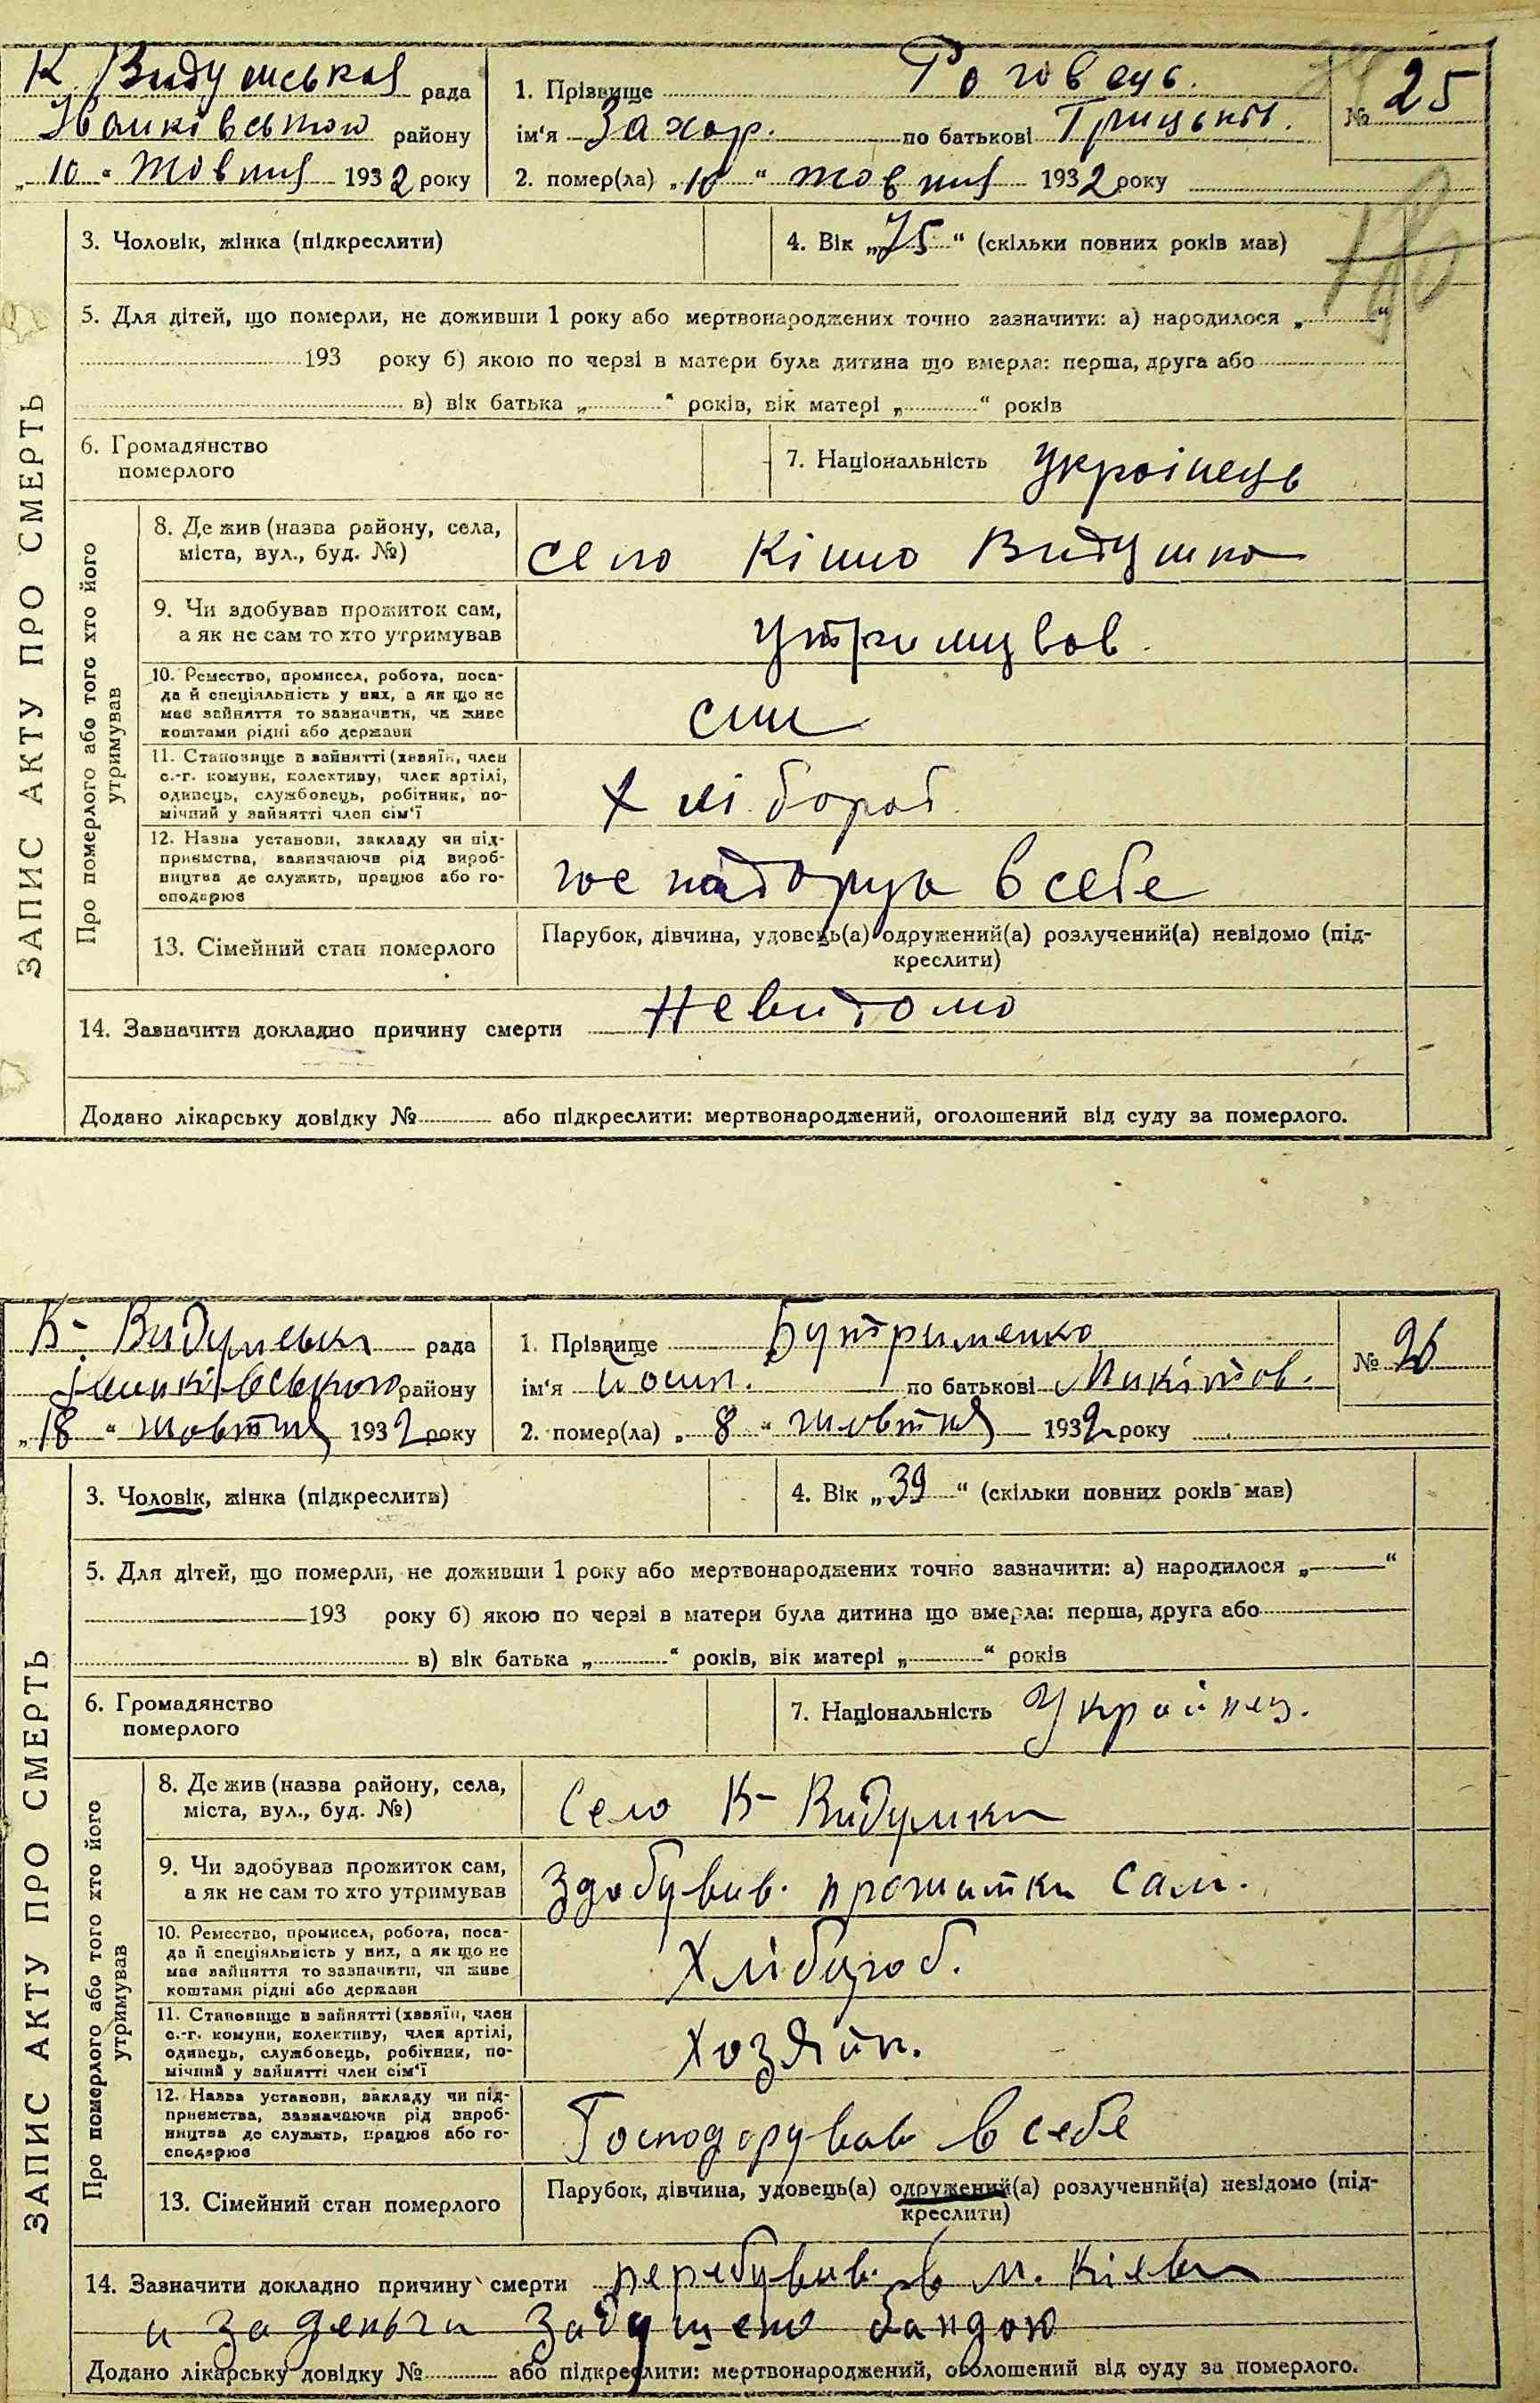 К Видумська рада
Іванківського району
„10“ жовтня 1932 року
1. Прізвище Роговець.
ім'я Захар. по батькові Грицьків.
№ 25
2. помер(ла) „10“ жовтня 1932 року
3. Чоловік, жінка (підкреслити)
4. Вік „75“ (скільки повних років мав)
5. Для дітей, що померли, не доживши 1 року або мертвонароджених точно зазначити: а) народилося „ “
193 року б) якою по черзі в матери була дитина що вмерла: перша, друга або
в) вік батька „ “ років, вік матері „ “ років
6. Громадянство
померлого
7. Національність Украінець
ЗАПИС АКТУ ПРО СМЕРТЬ
Про померлого або того хто його
утримував
8. Де жив (назва району, села,
міста, вул., буд. №)
село Видумка
9. Чи здобував прожиток сам,
а як не сам то хто утримував
утримував
10. Ремество, промисел, робота, поса-
да й спеціяльність у них, а як що не
має зайняття то зазначити, чи живе
коштами рідні або держави
син
11. Становище в зайнятті (хазяїн, член
с.-г. комуни, колективу, член артілі,
одинець, службовець, робітник, по-
мічний у зайнятті член сім'ї
Хлібороб
12. Назва установи, закладу чи під-
приємства, зазначаючи рід вироб-
ництва де служить, працює або го-
сподарює
в себе
13. Сімейний стан померлого
Парубок, дівчина, удовець(а) одружений(а) розлучений(а) невідомо (під-
креслити)
14. Зазначити докладно причину смерти Невидомо
Додано лікарську довідку № або підкреслити: мертвонароджений, оголошений від суду за померлого.
К- Видумська рада
Іванківського району
„18“ жовтня 1932 року
1. Прізвище Бутрименко
ім'я Йосип. по батькові Микітов.
№ 26
2. помер(ла) „8“ жовтня 1932 року
3. Чоловік, жінка (підкреслити)
4. Вік „39“ (скільки повних років мав)
5. Для дітей, що померли, не доживши 1 року або мертвонароджених точно зазначити: а) народилося „ “
193 року б) якою по черзі в матери була дитина що вмерла: перша, друга або
в) вік батька „ “ років, вік матері „ “ років
6. Громадянство
померлого
7. Національність Украйнец.
ЗАПИС АКТУ ПРО СМЕРТЬ
Про померлого або того хто його
утримував
8. Де жив (назва району, села,
міста, вул., буд. №)
Село К- Видумка
9. Чи здобував прожиток сам,
а як не сам то хто утримував
Здобував прожитки сам.
10. Ремество, промисел, робота, поса-
да й спеціяльність у них, а як що не
має зайняття то зазначити, чи живе
коштами рідні або держави
Хлібороб.
11. Становище в зайнятті (хазяїн, член
с.-г. комуни, колективу, член артілі,
одинець, службовець, робітник, по-
мічний у зайнятті член сім'ї
Хозяйн.
12. Назва установи, закладу чи під-
приємства, зазначаючи рід вироб-
ництва де служить, працює або го-
сподарює
Господарував в себе
13. Сімейний стан померлого
Парубок, дівчина, удовець(а) одружений(а) розлучений(а) невідомо (під-
креслити)
14. Зазначити докладно причину смерти перебував в м. Кіеви
и за деньги задушено бандою
Додано лікарську довідку № або підкреслити: мертвонароджений, оголошений від суду за померлого.